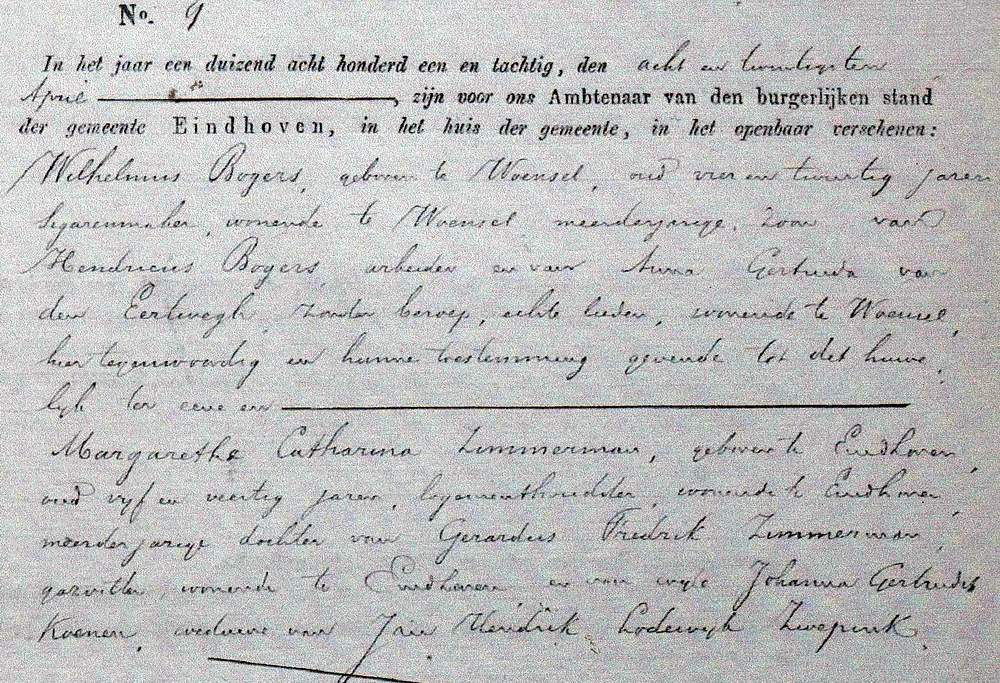 No. 9
In het jaar een duizend acht honderd een en tachtig, den acht en twintigsten
April, zijn voor ons Ambtenaar van den burgerlijken stand
der gemeente Eindhoven, in het huis der gemeente, in het openbaar verschenen:
Wilhelmus Bogers, geboren te Woensel, oud vier en twintig jaren
sigarenmaker, wonende te Woensel, meerderjarige zoon van
Hendricus Bogers, arbeider en van Anna Gertruda van
den Eertwegh, zonder beroep, echte lieden, wonende te Woensel,
hier tegenwoordig en hunne toestemming gevende tot dit huwe
lijk ter eene en
Margaretha Catharina Zimmerman, geboren te Eindhoven,
oud vyf en veertig jaren, logementhoudster, wonende te Eindhoven,
meerderjarige dochter van Gerardus Fredrik Zimmerman,
wonende te Eindhoven, en van wyle Johanna Gertrudis
Koenen, weduwe van Jan Hendrik Lodewyk Zweepink